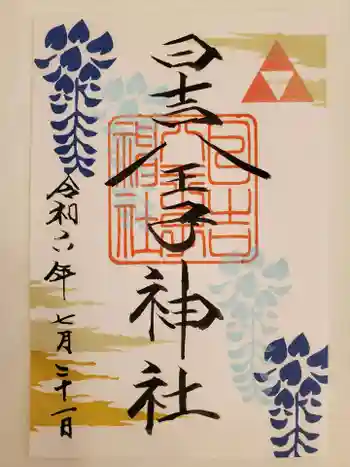 日吉八王子神社
令和六年七月二十一日
日吉八王子神社